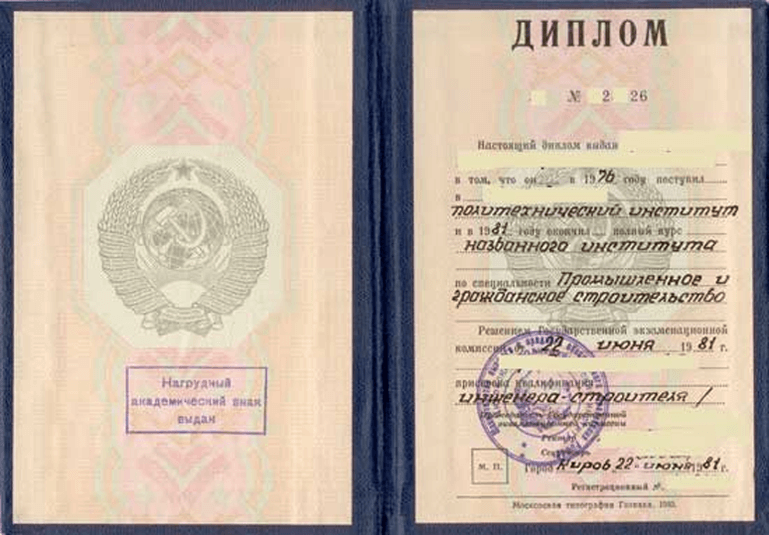 Нагрудный
академический знак
выдан
ДИПЛОМ
№ 2 26
Настоящий диплом выдан
в том, что он в 1976 году поступил
в
политехнический институт
и в 1981 году окончил полный курс
названного института
по специальности Промышленное и
гражданское строительство
Решением Государственной экзаменационной
комиссии от 22 июня 1981 г.
присвоена квалификация
инженера-строителя
Председатель Государственной
экзаменационной комиссии
Ректор
Секретарь
М. П.
Город Киров 22 июня 1981 г.
Регистрационный №
Московская типография Гознака.